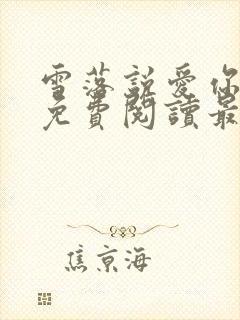 雪落説愛你
免費閱讀最
焦京海